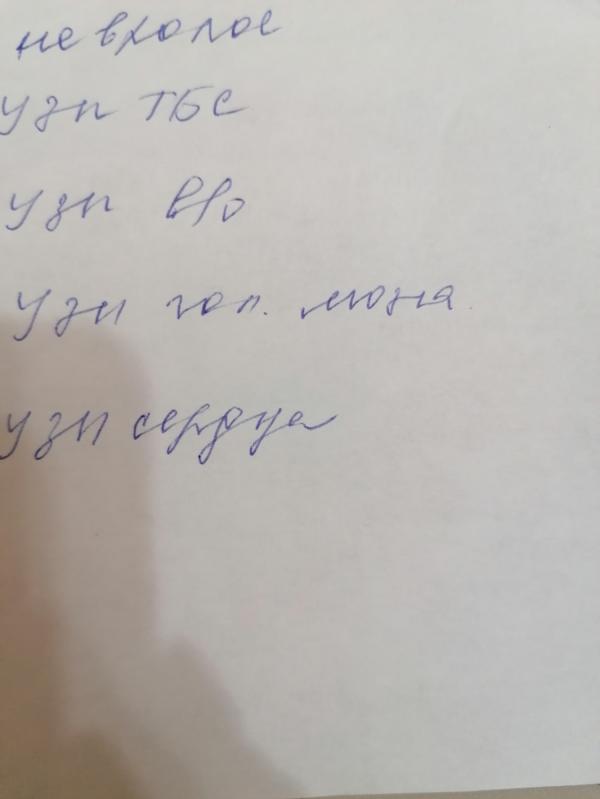 невролог
УЗИ ТБС
УЗИ в/о
УЗИ гол. мозга
УЗИ сердца